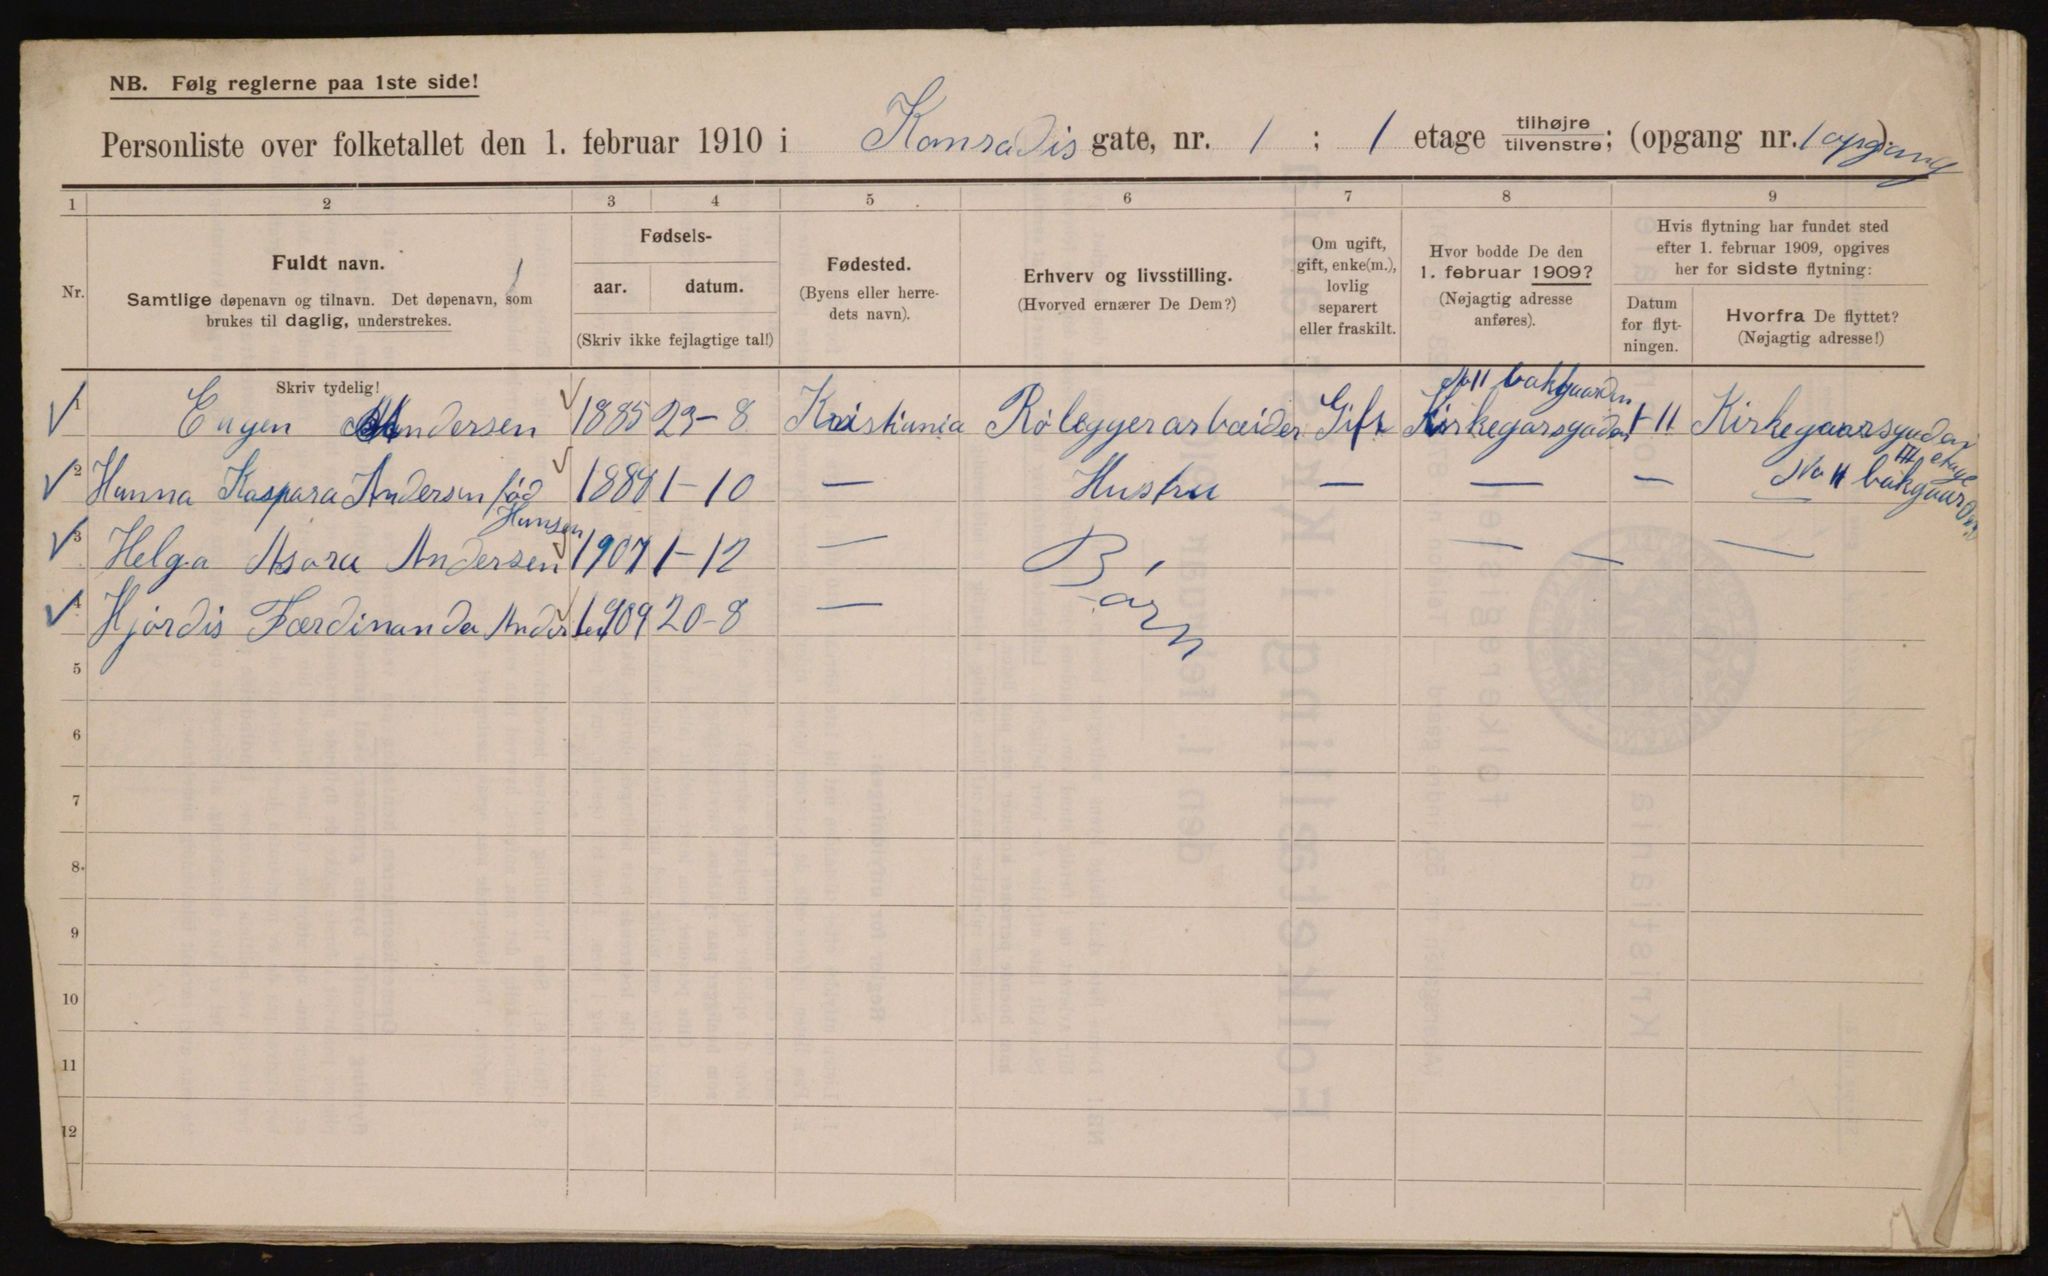 NB. Følg reglerne paa 1ste side!
Personliste over folketallet den 1. februar 1910 i Konradis gate, nr. 1 ; 1 etage tilhøjre/tilvenstre; (opgang nr. 1 opgang).
1 2 3 4 5 6 7 8 9
Nr.
Fuldt navn.
Samtlige døpenavn og tilnavn. Det døpenavn, som
brukes til daglig, understrekes.
Fødsels-
aar. datum.
(Skriv ikke fejlagtige tal!)
Fødested.
(Byens eller herre-
dets navn).
Erhverv og livsstilling.
(Hvorved ernærer De Dem?)
Om ugift,
gift, enke(m.),
lovlig
separert
eller fraskilt.
Hvor bodde De den
1. februar 1909?
(Nøjagtig adresse
anføres).
Hvis flytning har fundet sted
efter 1. februar 1909, opgives
her for sidste flytning:
Datum
for flyt-
ningen.
Hvorfra De flyttet?
(Nøjagtig adresse!)
Skriv tydelig!
No 11 bakgaarden
1 Eugen Andersen 1885 29-8 Kristiania Röleggerarbæider Gift Kirkegarsgaden 1-11 Kirkegaarsgaden
III etage
2 Hanna Kaspara Andersen fød 1-10 — Hustru — — — No 11 bakgaarden
Hansen
3 Helga Asora Andersen 1907 1-12 — Börn — — —
4 Hjördis Færdinanda Andersen 1909 20-8 —
5
6
7
8
9
10
11
12